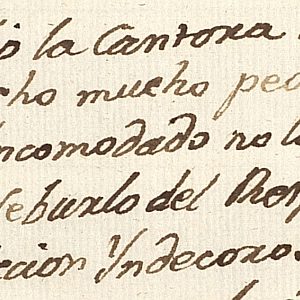 la Cantora
cho mucho
ncomodado no
se burlo del
cion Yndecoro